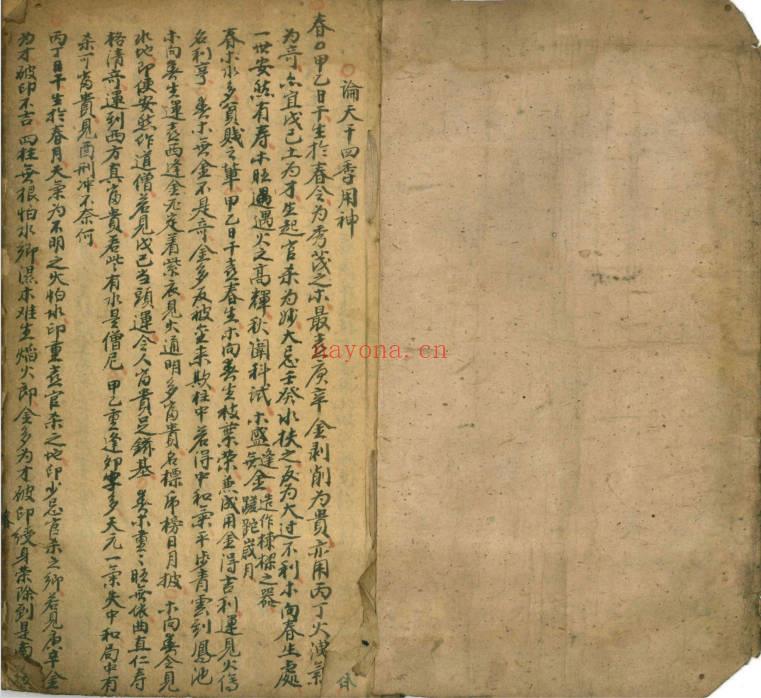 論天干四季用神
春〇甲乙日干生於春令為秀茂之木最喜庚辛金剥削為貴亦用丙丁火洩氣
為奇亦宜戊己土為才生起官杀為妙大忌壬癸水扶之反為大过不利木向春生處
一世安然有寿木旺遇過火之高輝秋闈科試木盛逢金造作棟樑之器無金蹉跎歲月
春木水多貧賤之輩甲乙日干喜春生木向春生枝葉荣無成用金得吉利運見火
名利亨春木無金不是奇金多反被金来欺柱中若得中和氣平步青雲到鳳池
木向春生運喜西逢金死定着紫衣見火通明多富貴名標虎榜日月披木向春令見
水地即便安然作道僧若見戊己当頭運令人富貴足鎡基春木重重旺無依曲直仁寿
格清奇運到西方真富貴若有水是僧尼甲乙重逢卯多天元一氣失中和局中有
杀可富貴見酉刑冲不奈何
丙丁日干生於春月天氣為不明之火怕水印重喜官杀之地印少忌官杀之鄉若見庚辛金
為才破印不吉四柱無根怕水鄉濕木难生焰火即金多為才破印綬身荣除到是南
nayona.cn